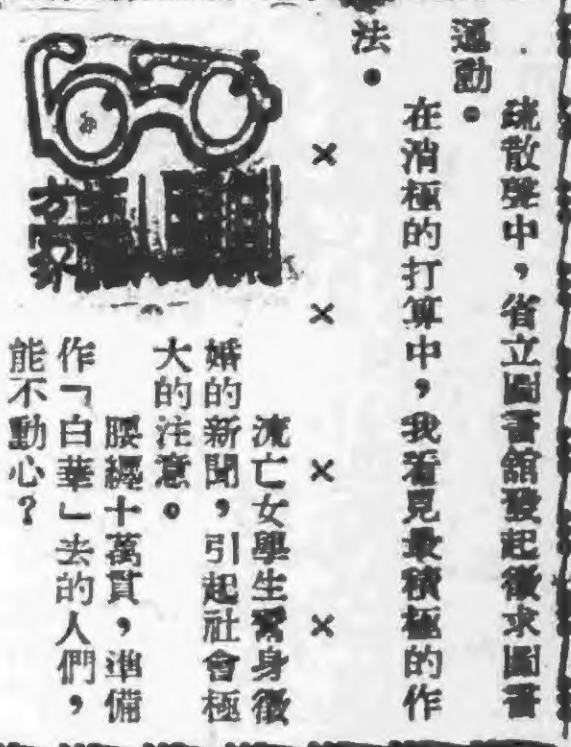 疏散聲中，省立圖書館發起徵求圖書
運動。
在消極的打算中，我看見最積極的作
法。
× × × ×
流亡女學生賣身徵
婚的新聞，引起社會極
大的注意。
腰纏十萬貫，準備
作「白華」去的人們，
能不動心？